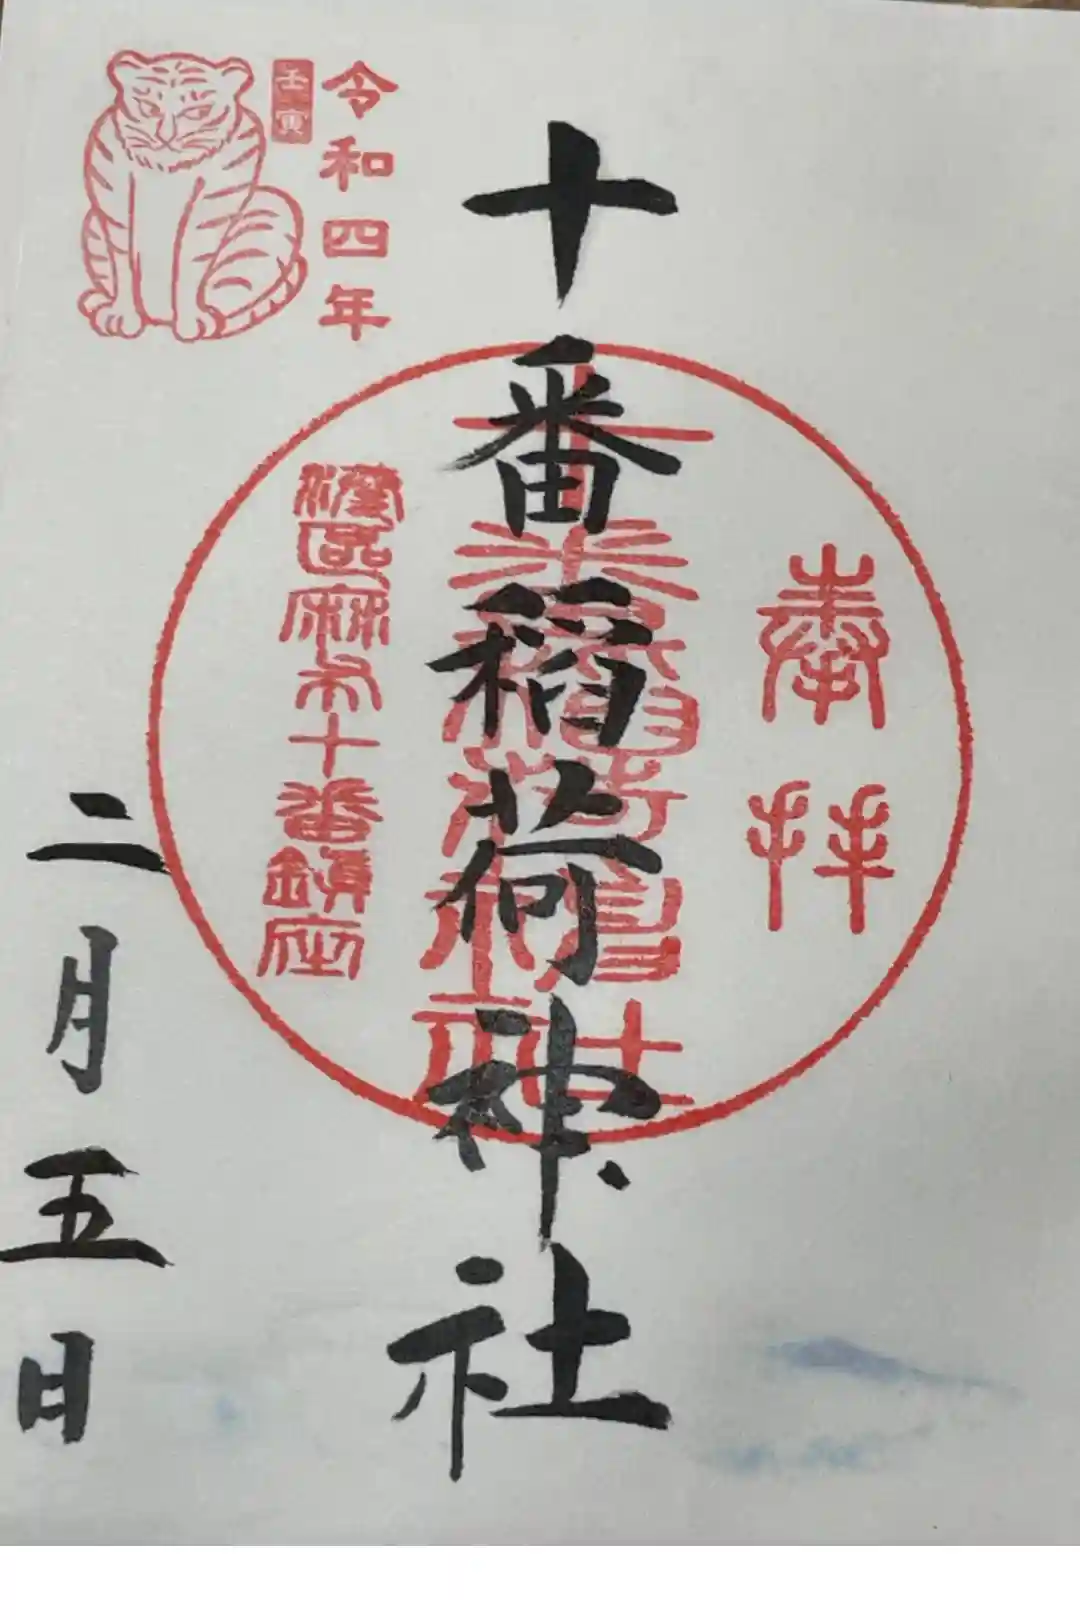 奉拝
十番稲荷神社
十番稲荷神社
港区麻布十番鎮座
令和四年
壬寅
二月五日